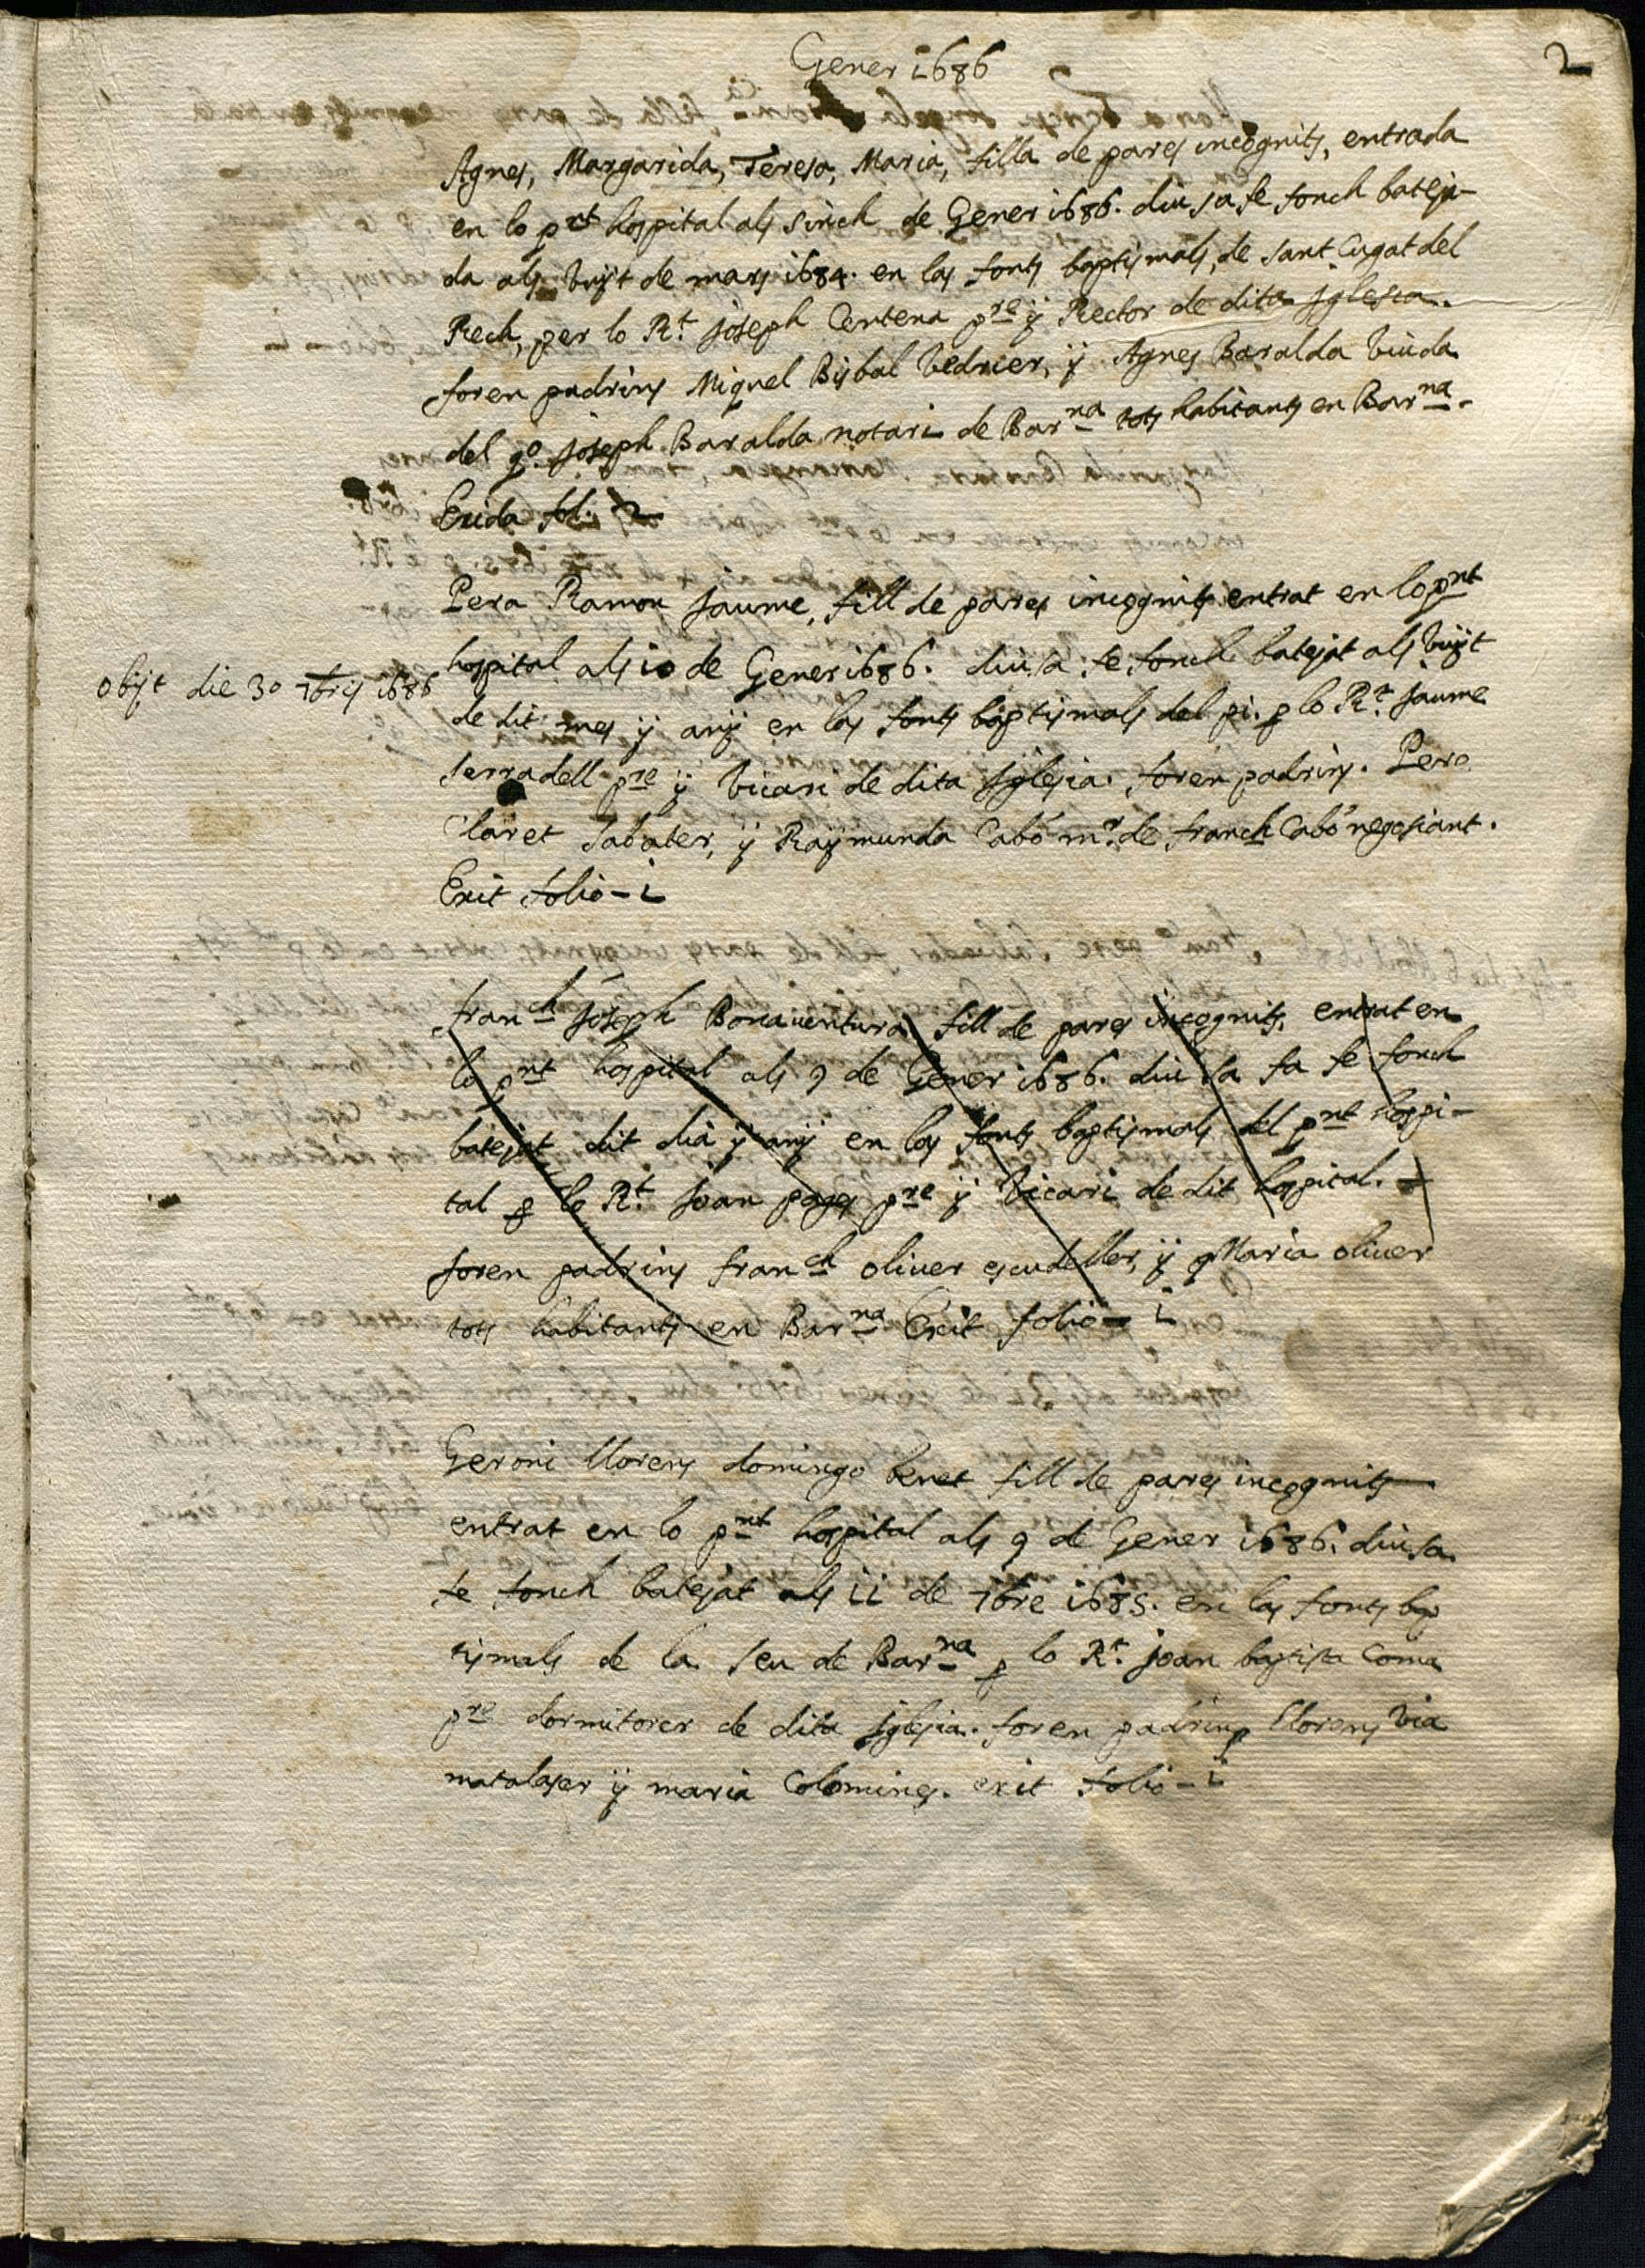 Gener 1686
2
Agnes, Margarida, Teresa, Maria, filla de pares incognits, entrada
en lo pnt hospital als sinch de Gener 1686. diu sa fe fonch bateja-
da als vuyt de mars 1684. en las fonts baptismals, de sant Cugat del
Rech, per lo Rt. joseph Centena pre ÿ Rector de dita jglesia.
foren padrins Miquel Bisbal Vedrier, ÿ Agnes Baralda Viuda
del qo. joseph Baralda notari de Barna tots habitants en Barna.
Exida fol. 2
Pera Ramon Jaume, fill de pares incognits entrat en lo pnt
hospital als 10 de Gener 1686. diu sa fe fonch batejat als vuyt
obijt die 30 7bris 1686
de dit mes ÿ anÿ en las fonts baptismals del pi. p lo Rt. Jaume
serradell pre ÿ Vicari de dita Jglesia. foren padrins. Pere
Claret Sabater, ÿ Raÿmunda Cabó mr. de Franch Cabó negosiant.
Exit folio - 1
franch Joseph Bonaventura fill de pares incognits, entrat en
lo pnt hospital als 9 de Gener 1686. diu sa fa fe fonch
batejat dit dia ÿ anÿ en las fonts baptismals del pnt hospi-
tal p lo Rt. Joan pages pre ÿ Vicari de dit hospital.
foren padrins franch oliver escudeller, ÿ Maria oliver
tots habitants en Barna Exit folio - 1
Geroni llorens domingo benet fill de pares incognits
entrat en lo pnt hospital als 9 de Gener 1686. diu sa
fe fonch batejat als 11 de 7bre 1685. en las fonts bap
tismals de la seu de Barna p lo Rt. joan baptista Coma
pre dormitorer de dita jglesia. foren padrins llorens Via
matalaser ÿ maria Colomines. exit folio - 1